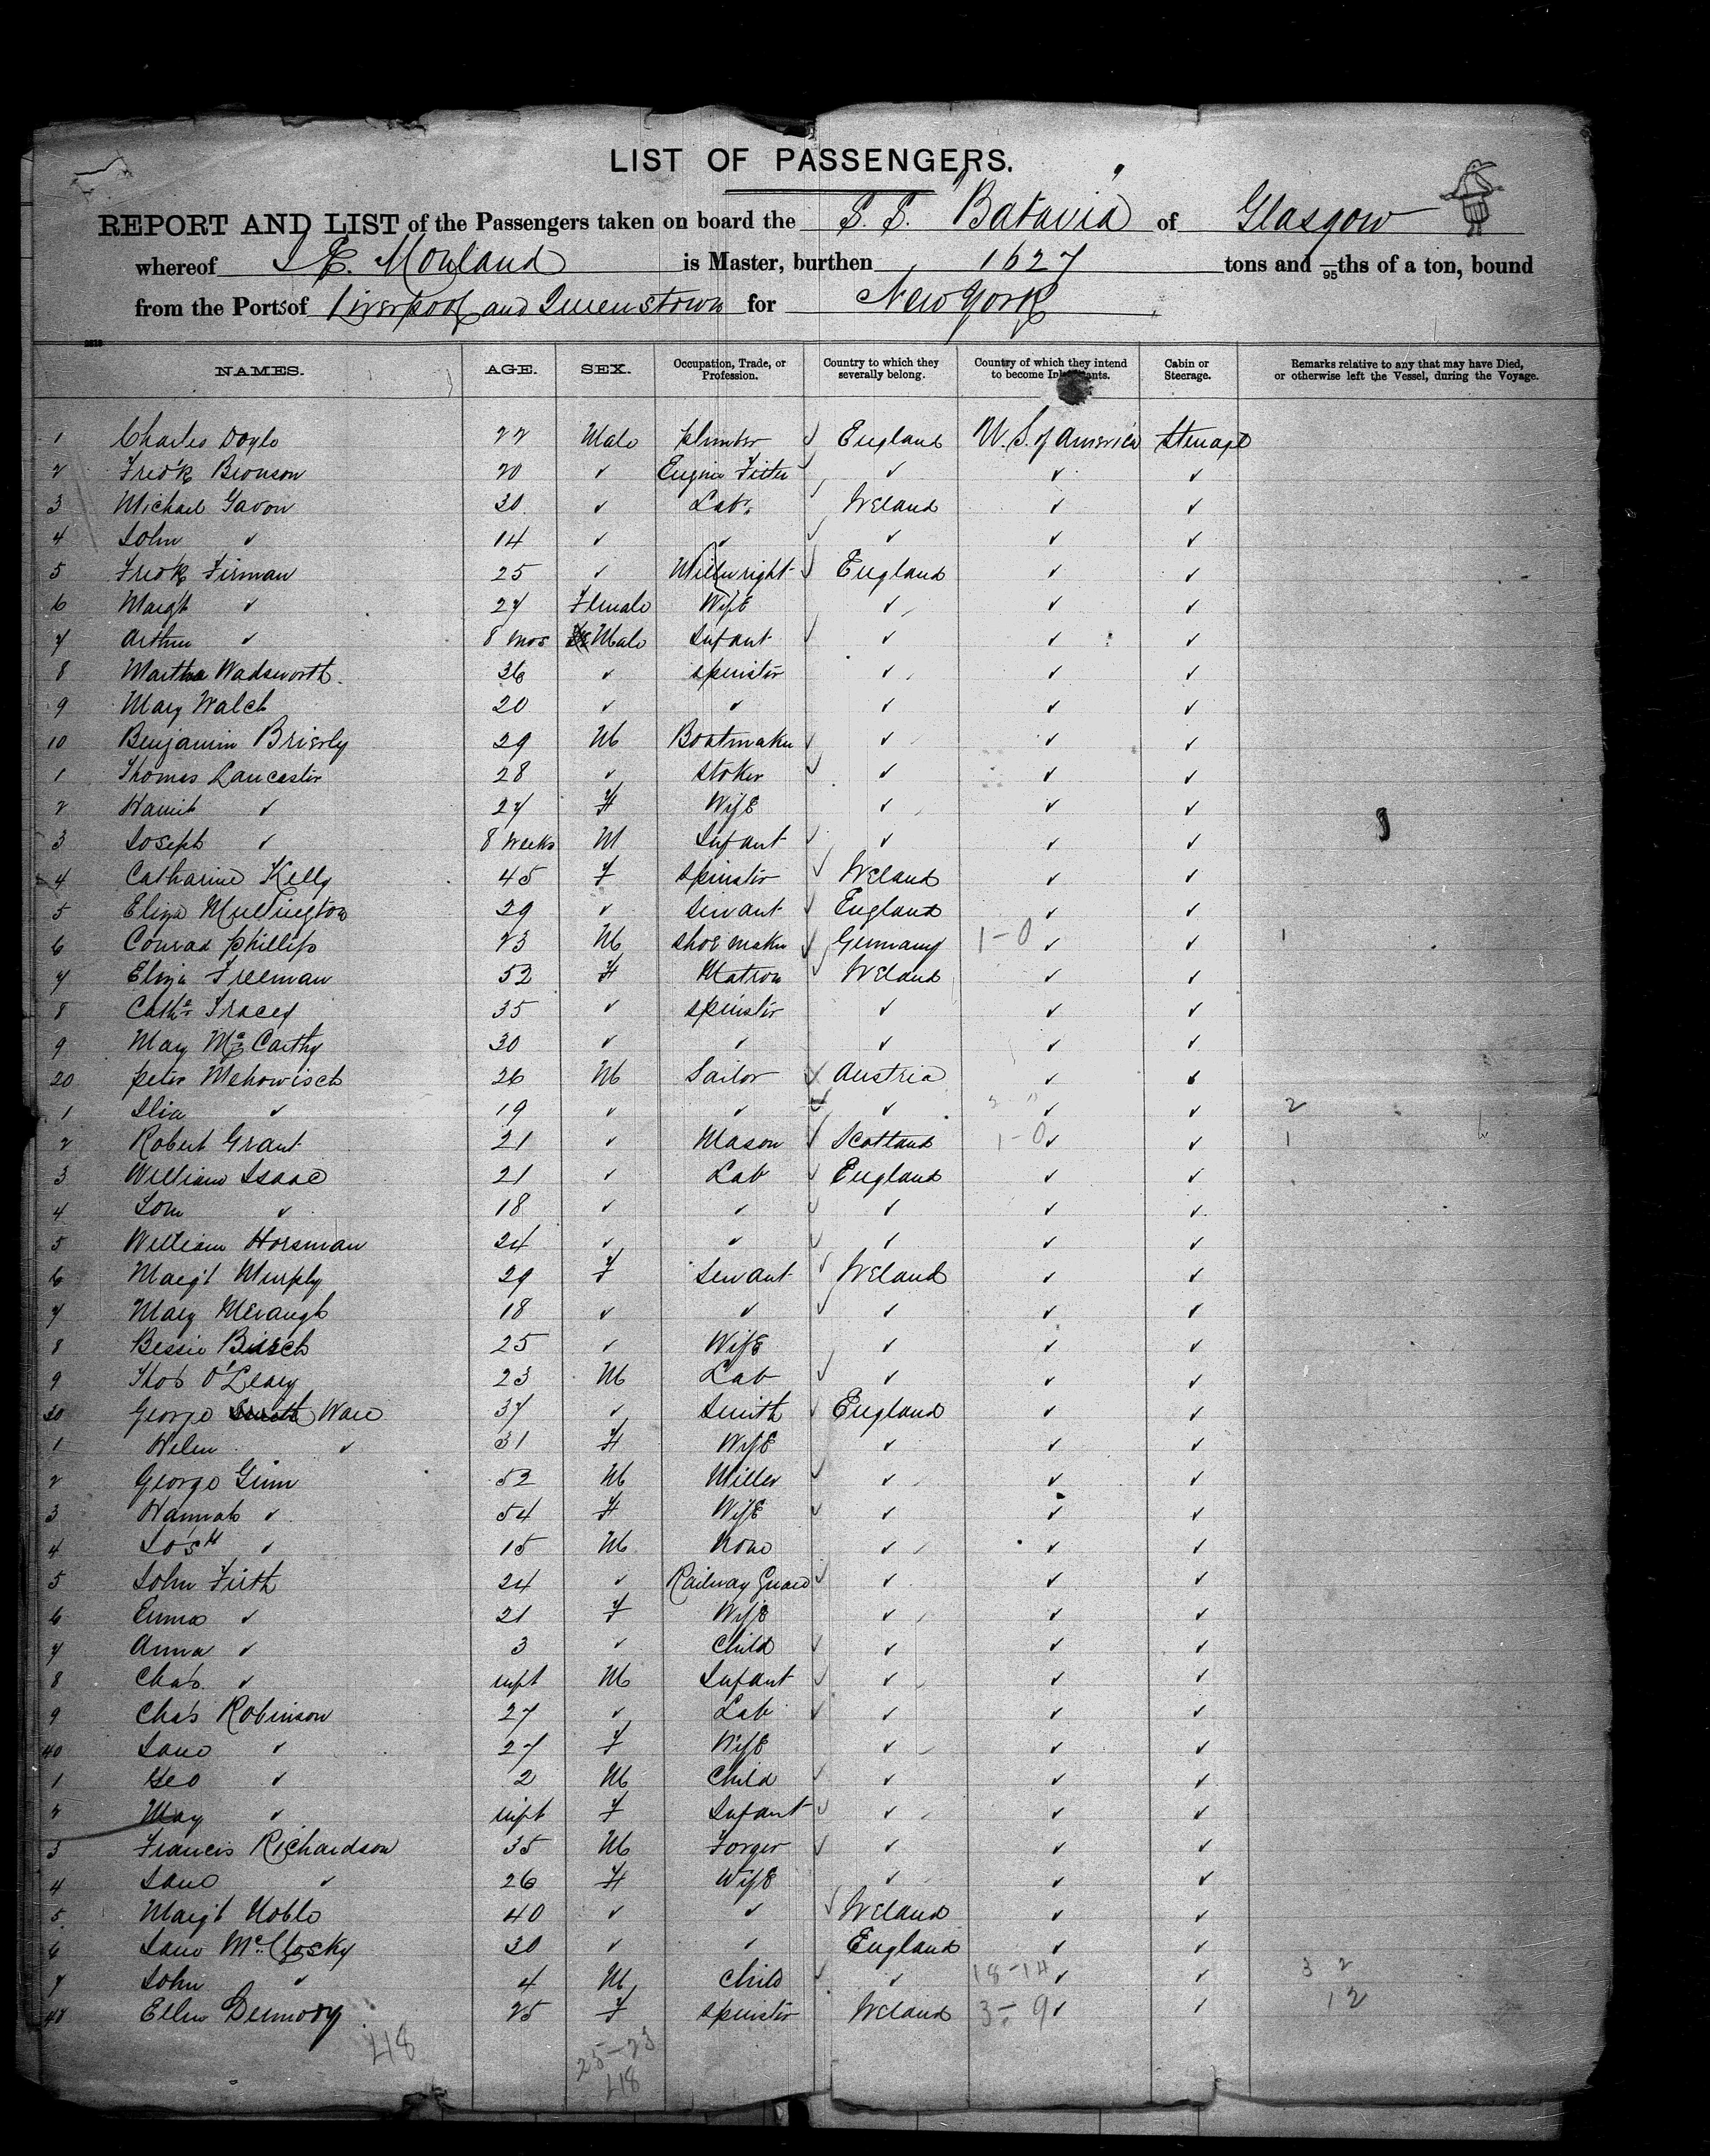 LIST OF PASSENGERS.
REPORT AND LIST of the Passengers taken on board the S. S. "Batavia" of Glasgow
whereof J E. Mouland is Master, burthen 1627 tons and /95ths of a ton, bound
from the Ports of Liverpool and Queenstown for New York
NAMES. AGE. SEX. Occupation, Trade, or Profession. Country to which they severally belong. Country of which they intend to become Inhabitants. Cabin or Steerage. Remarks relative to any that may have Died, or otherwise left the Vessel, during the Voyage.
1 Charles Doyle 22 Male plumber ✓ England U. S. of America Steerage
2 Fredk Bronson 20 ✓ Engine Fitter ✓ ✓ ✓ ✓
3 Michael Gavon 30 ✓ Labr. Ireland ✓ ✓
4 John ✓ 14 ✓ ✓ ✓ ✓ ✓ ✓
5 Fredk Firman 25 ✓ Millwright ✓ England ✓ ✓
6 Margt ✓ 27 Female Wife ✓ ✓ ✓
7 Arthur ✓ 8 mos Male Infant ✓ ✓ ✓ ✓
8 Martha Wadsworth. 36 ✓ spinster ✓ ✓ ✓
9 Mary Walch 20 ✓ ✓ ✓ ✓ ✓
10 Benjamin Brierly 29 M Bootmaker ✓ ✓ ✓ ✓
1 Thomas Lancaster 28 ✓ Stoker ✓ ✓ ✓ ✓
2 Harriet ✓ 27 F Wife ✓ ✓ ✓
3 Joseph ✓ 8 Weeks M Infant ✓ ✓ ✓ ✓
4 Catharine Kelly 45 F Spinster ✓ Ireland ✓ ✓
5 Eliza Mullington 29 ✓ Servant ✓ England ✓ ✓
6 Conrad Phillips 23 M Shoe maker ✓ Germany 1-0 ✓ ✓ 1
7 Eliza Freeman 52 F Matron ✓ Ireland ✓ ✓
8 Cathe Tracey 35 ✓ spinster ✓ ✓ ✓
9 Mary McCarthy 30 ✓ ✓ ✓ ✓ ✓
20 Peter Mehowisch 26 M Sailor ✓ Austria ✓ ✓
1 Ilia ✓ 19 ✓ ✓ ✓ ✓ ✓ ✓ 2
2 Robert Grant 21 ✓ Mason ✓ Scotland 1-0 ✓ ✓ 1
3 William Isaac 21 ✓ Lab ✓ England ✓ ✓
4 Tom ✓ 18 ✓ ✓ ✓ ✓ ✓ ✓
5 William Horsman 24 ✓ ✓ ✓ ✓ ✓ ✓
6 Margt Murphy 29 F Servant ✓ Ireland ✓ ✓
7 Mary 18 ✓ ✓ ✓ ✓ ✓ ✓
8 Bessie 25 ✓ Wife ✓ ✓ ✓
9 Thos O'Leary 23 M Lab ✓ ✓ ✓ ✓
30 George Smith Ware 37 ✓ Smith ✓ England ✓ ✓
1 Helen ✓ 31 F Wife ✓ ✓ ✓
2 George Ginn 52 M Miller ✓ ✓ ✓ ✓
3 Hannah ✓ 54 F Wife ✓ ✓ ✓ ✓
4 Josh ✓ 15 M None ✓ ✓ ✓
5 John Firth 24 ✓ Railway Guard ✓ ✓ ✓ ✓
6 Emma ✓ 21 F Wife ✓ ✓ ✓
7 Anna ✓ 3 ✓ Child ✓ ✓ ✓ ✓
8 Chas. ✓ inft M Infant ✓ ✓ ✓ ✓
9 Chas Robinson 27 ✓ Lab ✓ ✓ ✓ ✓
40 Jane ✓ 27 F Wife ✓ ✓ ✓
1 Geo ✓ 2 M Child ✓ ✓ ✓ ✓
2 May ✓ inft F Infant ✓ ✓ ✓ ✓
3 Francis Richardson 35 M Forger ✓ ✓ ✓ ✓
4 Jane ✓ 26 F Wife ✓ ✓ ✓
5 Margt Noble 40 ✓ ✓ ✓ Ireland ✓ ✓
6 Jane McClosky 30 ✓ ✓ England ✓ ✓
7 John ✓ 4 M Child ✓ ✓ 18-14 ✓ ✓ 3 2
48 Ellen Dermody 25 F Spinster Ireland 3-9 ✓ ✓ 12
48 25-23
48